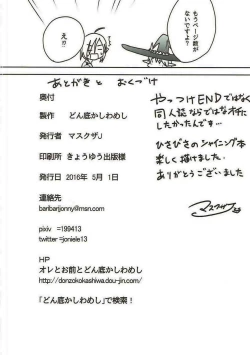 もうページ数が
ないですよ?
え!?
あとがき と おくづけ
奥付
製作 どん底かしわめし
発行者 マスクザJ
印刷所 きょうゆう出版様
発行日 2016年 5月 1日
連絡先
baribarijonny@msn.com
pixiv =199413
twitter =joniele13
HP
オレとお前とどん底かしわめし
http://donzokokashiwa.dou-jin.com/
「どん底かしわめし」で検索!
やっつけENDではなく
同人誌ならではなオチに
したかったんです…
ひさびさのシャイニング本
楽しく描けました。
ありがとうございました
マスクザJ